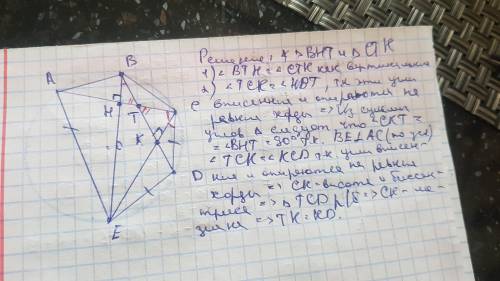 Решение: △ BHT и △ CTK
1) ∠BTH = ∠CTK как вертикальные
2) ∠TCK = ∠HBT, т.к эти углы
вписанные и опираются на
равные хорды => Из суммы
углов △ следует, что ∠CKT =
= ∠BHT = 90° т.к. BE⊥AC (по усл)
∠TCK = ∠KCD т.к. углы вписан-
ные и опираются на равные
хорды => CK - высота и биссек-
триса => △ TCD р/б => CK - ме-
диана => TK = KD.
A
B
C
H
T
K
D
E